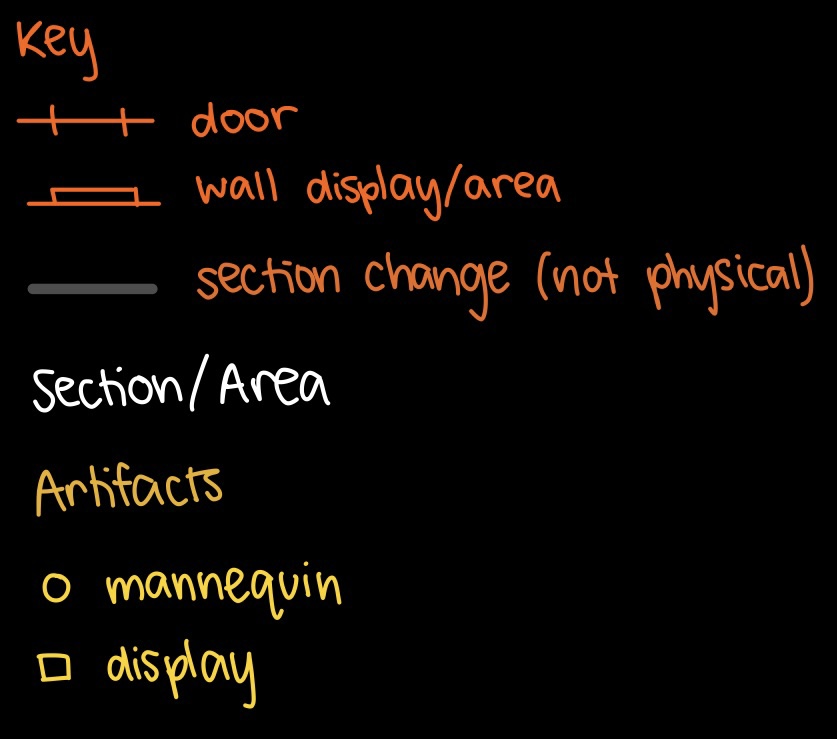 Key
door
wall display/area
section change (not physical)
Section/Area
Artifacts
mannequin
display